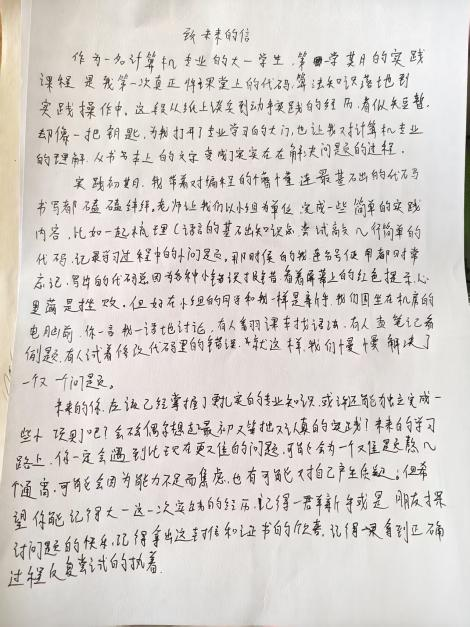 致未来的信
作为一名计算机专业的大一学生,第一学期的实践
课程是我第一次真正将课堂上的代码、算法知识落地到
实践操作中。这段从纸上谈兵到动手实践的经历,看似短暂,
却像一把钥匙,为我打开了专业学习的大门,也让我对计算机专业
的理解,从书本上的文字变成了实实在在解决问题的过程。
实践初期,我带着对编程的懵懂,连最基础的代码
书写都磕磕绊绊。老师让我们以小组为单位,完成一些简单的实践
内容,比如一起梳理C语言的基础知识点,尝试敲几行简单的
代码,记录学习过程中的小问题。那时候的我连符号使用都时常
忘记,写出的代码总因为各种小错误报错,看着屏幕上的红色提示,心
里满是挫败。但好在小组的同学和我一样是新手,我们围坐在机房的
电脑前,你一言我一语地讨论,有人翻课本找语法,有人查笔记看
例题,有人试着修改代码里的错误,就这样,我们慢慢解决了
一个又一个问题。
未来的你,应该已经掌握了更扎实的专业知识,或许还能独立完成一
些小项目吧?会不会偶尔想起最初又笨拙又认真的实践?未来的学习
路上,你一定会遇到比现在更难的问题,可能会为一个难题熬几
个通宵,可能会因为能力不足而焦虑,也有可能对自己产生质疑。但希
望你能记得大一这一次实践的经历,记得一群新手 朋友探
讨问题的快乐,记得拿出这封信和证书的 ,记得 看到正确
过程反复尝试的执着。